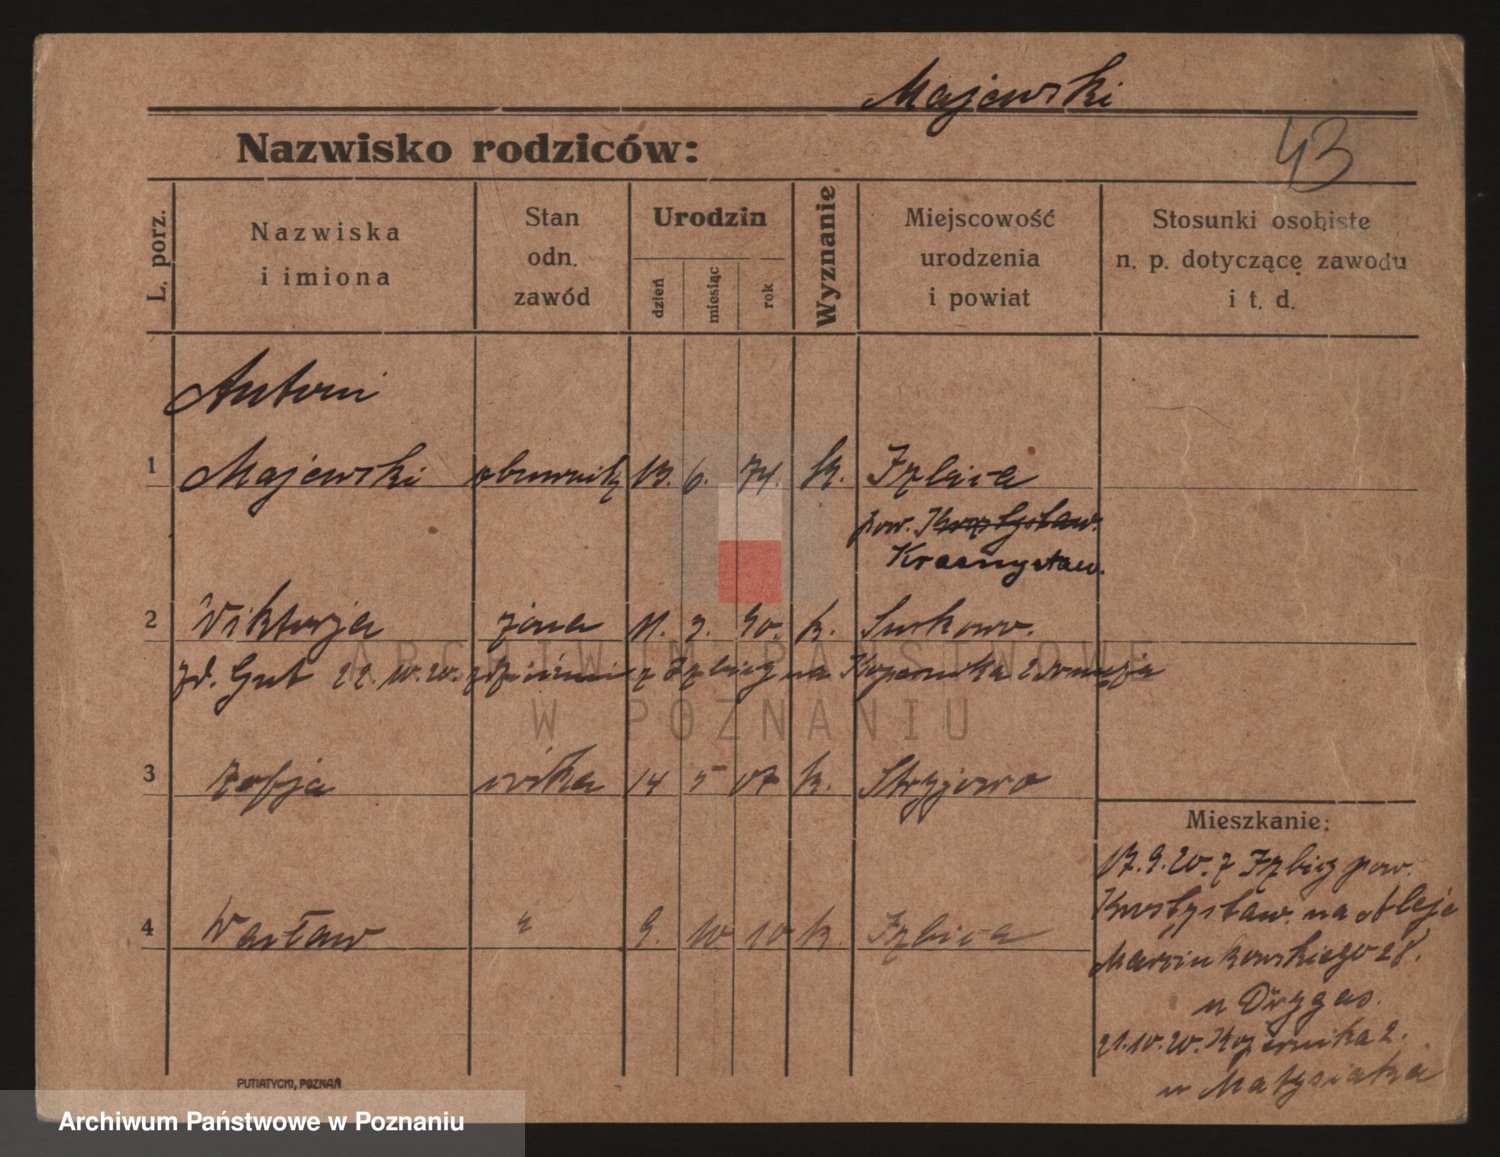 Majewski
43
Nazwisko rodziców:
L. porz.
Nazwiska
i imiona
Stan
odn.
zawód
Urodzin
dzień
miesiąc
rok
Wyznanie
Miejscowość
urodzenia
i powiat
Stosunki osobiste
n. p. dotyczące zawodu
i t. d.
Antoni
1 Majewski obuwnik 13. 6. 74. k. Izbica
pow.
Krasnystaw.
2 Wiktorja żona 11. 3. 90. k. Surkowo.
zd. Gut 22. 10. 20. z Izbicy na Kopernika 2
ARCHIWUM PAŃSTWOWE
W POZNANIU
3 Zofja córka 14 5 07 k. Stryjowo
Mieszkanie:
17. 9. 20. z Izbicy pow.
na Aleje
4 Wacław " 9. 10 10 k. Izbica
Marcinkowskiego 28.
u Drygas.
21. 10. 20. Kopernika 2.
u Matysiaka
PUTIATYCKI, POZNAŃ
Archiwum Państwowe w Poznaniu